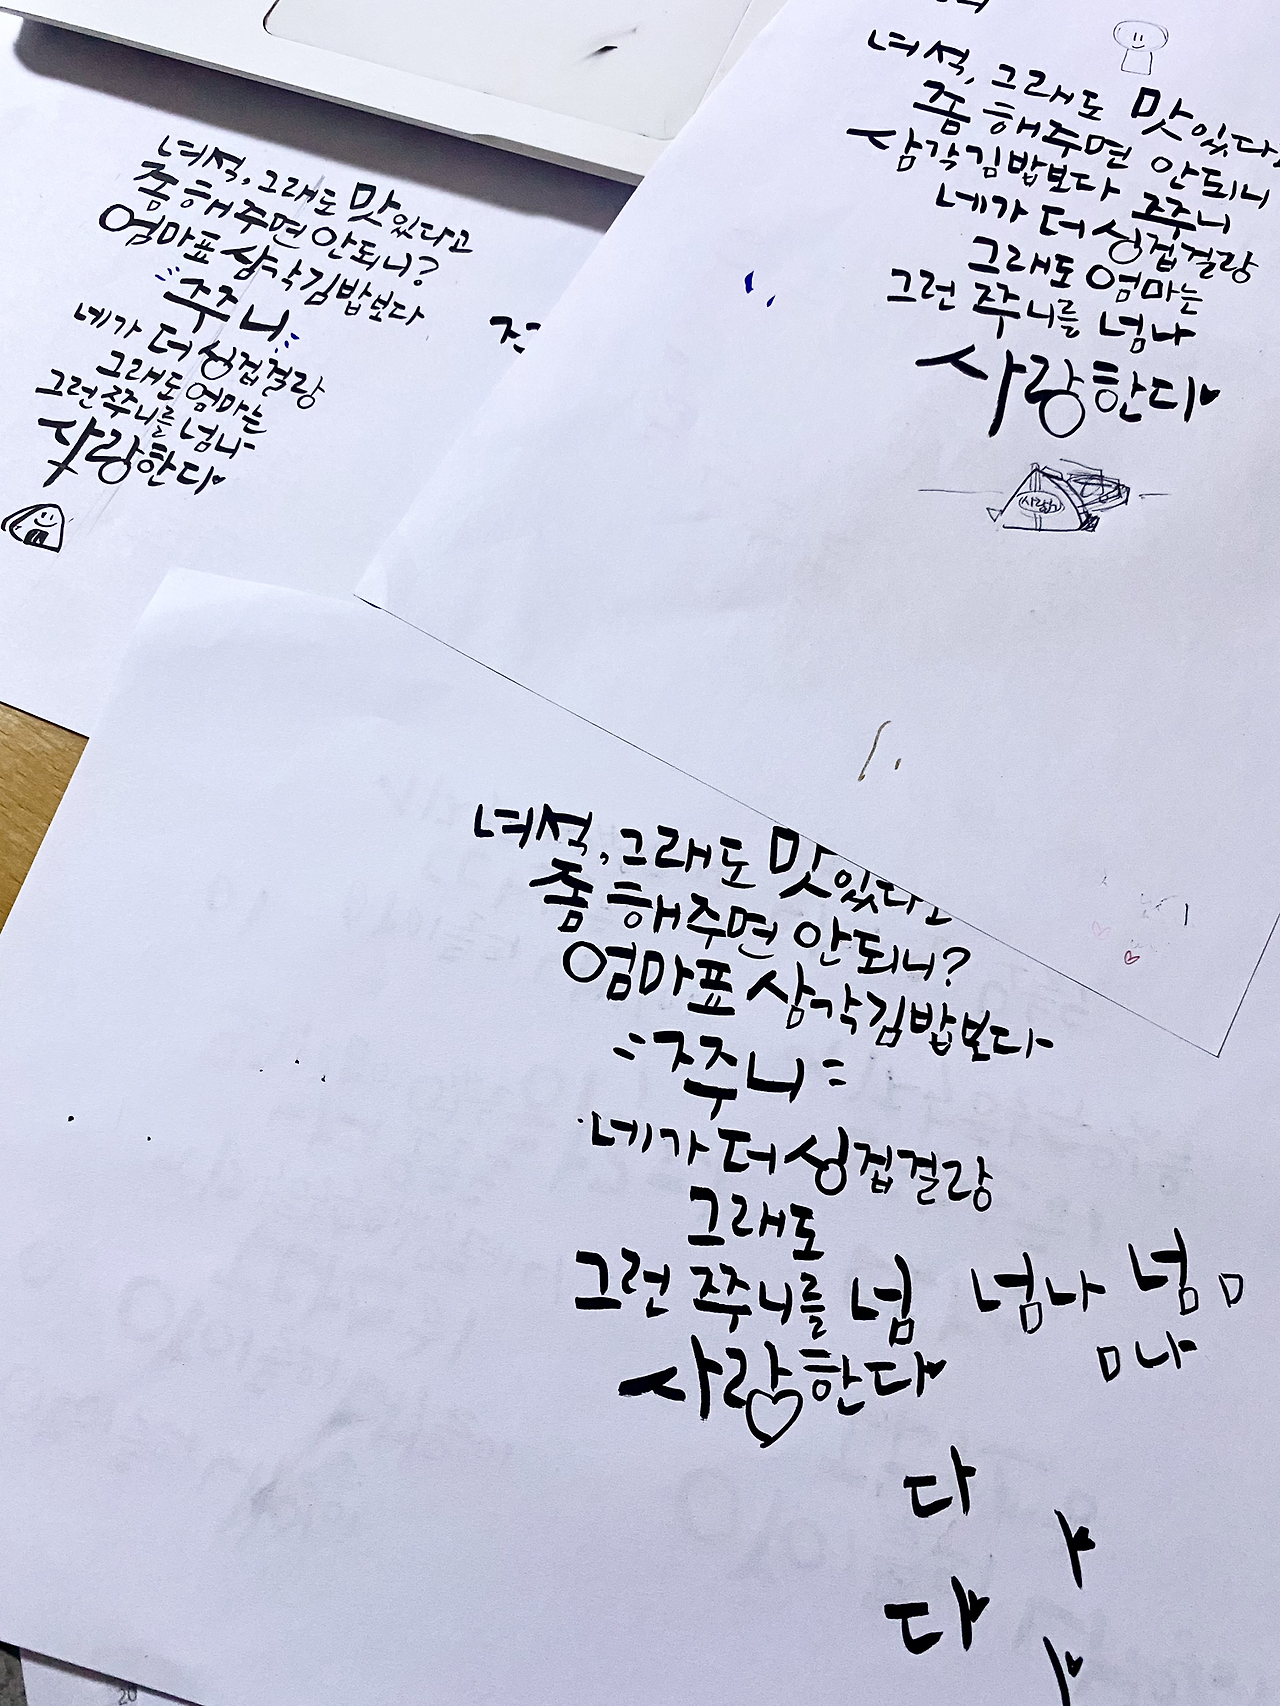 녀석, 그래도 맛있다고
좀 해주면 안되니?
엄마표 삼각김밥보다
주주니
네가 더 싱겁걸랑
그래도 엄마는
그런 주주니를 넘나
사랑한다
녀석, 그래도 맛있다
좀 해주면 안되니
삼각김밥보다 주주니
네가 더 싱겁걸랑
그래도 엄마는
그런 주주니를 넘나
사랑한다
녀석, 그래도 맛있다고
좀 해주면 안되니?
엄마표 삼각김밥보다
주주니
네가 더 싱겁걸랑
그래도
그런 주주니를 넘 넘나 넘 ㅁ
ㅁ나
사랑한다
다
ㅏ
다
ㅏ
20